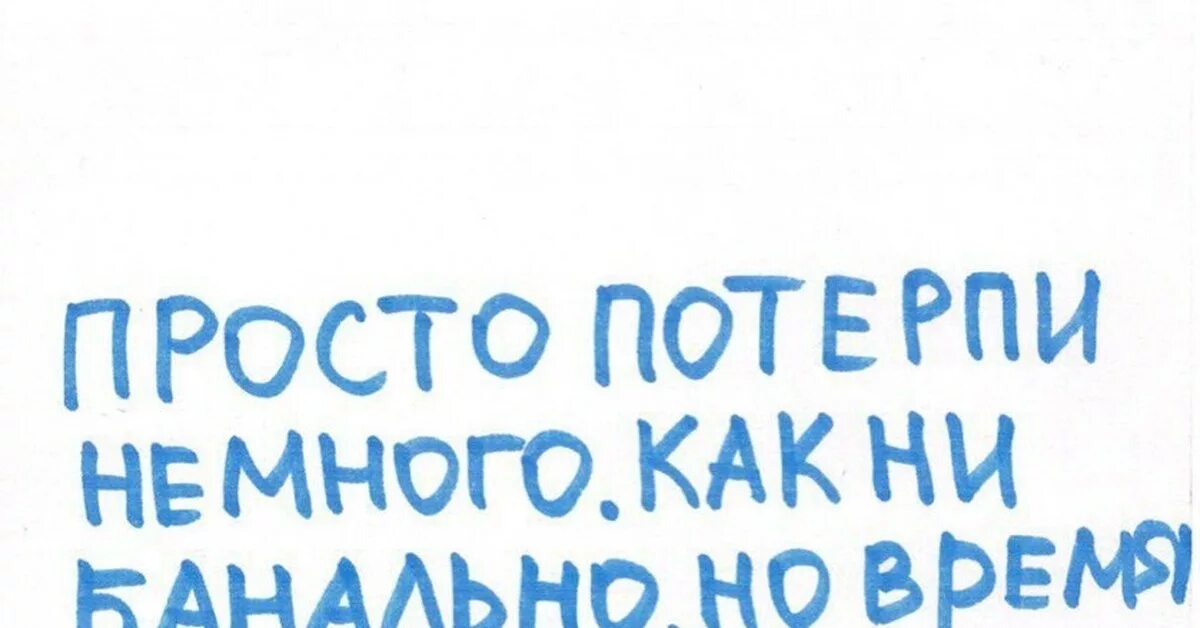 ПРОСТО ПОТЕРПИ
НЕМНОГО. КАК НИ
БАНАЛЬНО, НО ВРЕМЯ